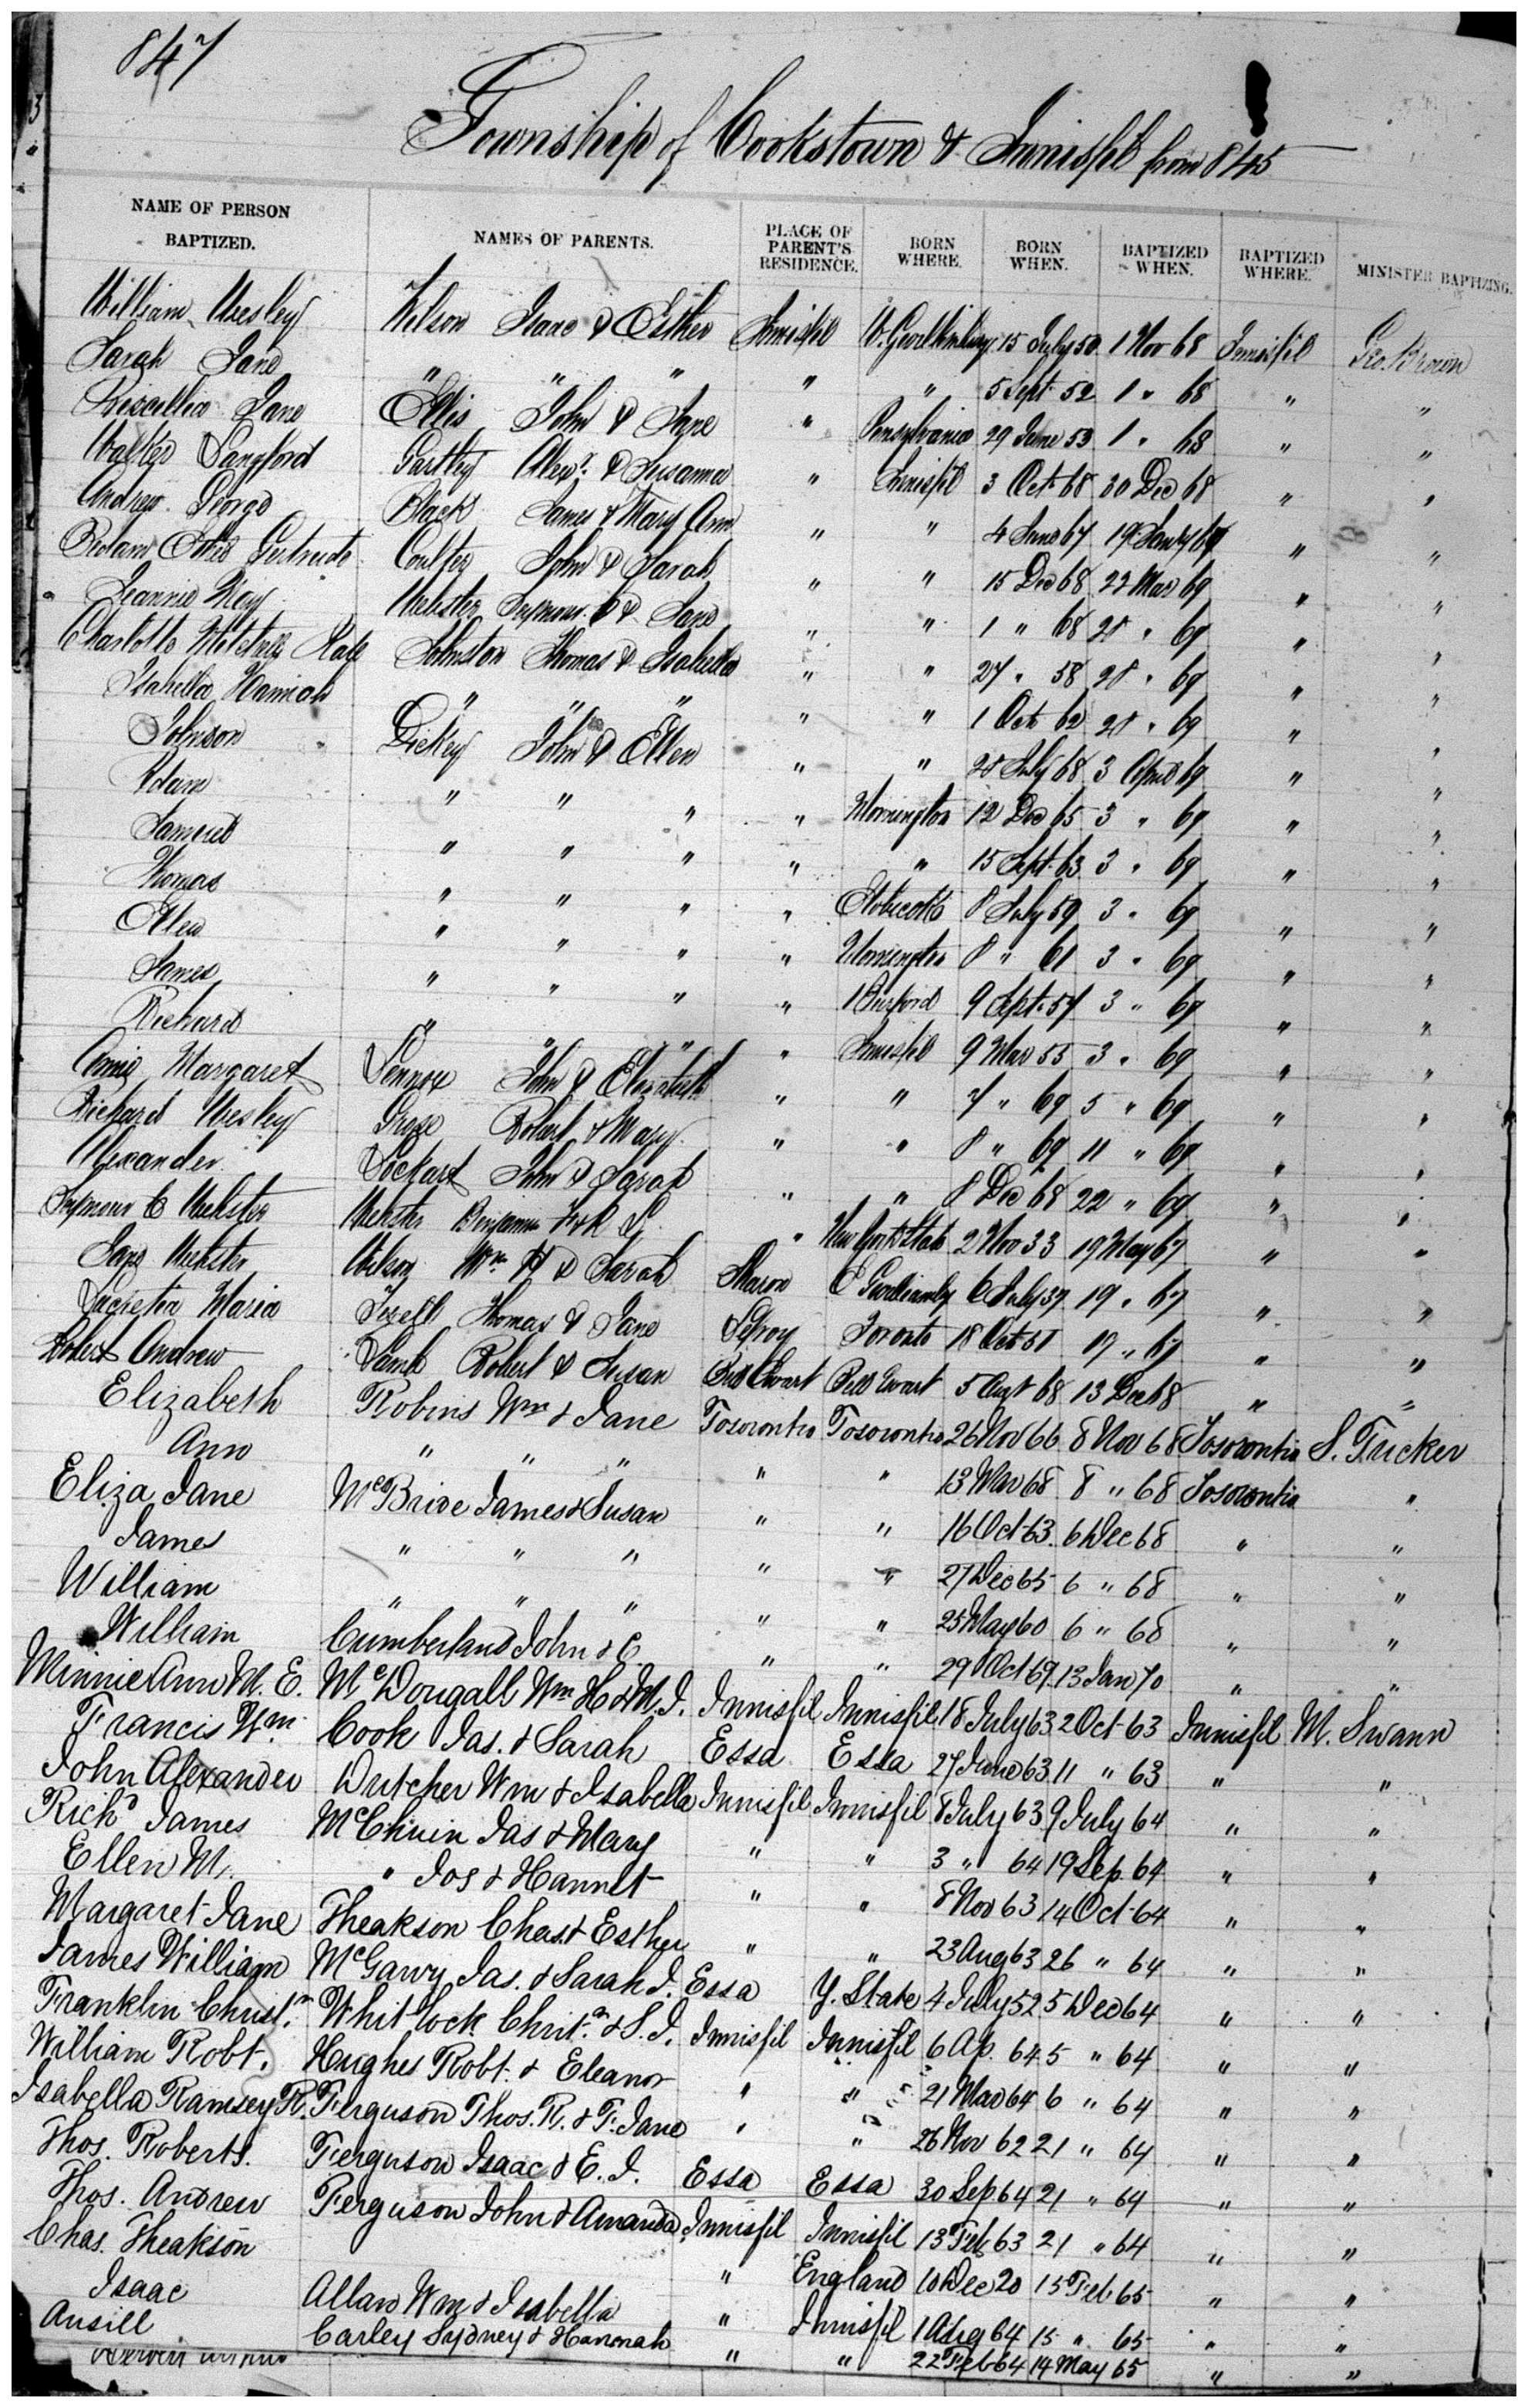 847
Township of Cookstown & Innisfil from 845
NAME OF PERSON BAPTIZED. NAMES OF PARENTS. PLACE OF PARENT'S RESIDENCE. BORN WHERE. BORN WHEN. BAPTIZED WHEN. BAPTIZED WHERE. MINISTER BAPTIZING.
William Wesley Wilson Isaac & Esther Innisfil W. Gwillimbury 15 July 50 1 Nov 68 Innisfil Geo. Brown
Sarah Jane " " " " " 5 Sept 52 1 " 68 " "
Priscilla Jane Ellis John & Jane " Pensylvania 29 June 53 1 " 68 " "
Walter Langford Gartley Alexr. & Susanna " Innisfil 3 Oct 68 30 Dec 68 " "
Andrew George Black James & Mary Ann " " 4 June 67 19 Jany 69 " "
Edith Gertrude Coulter John & Sarah " " 15 Dec 68 22 Mar 69 " "
Jeannie May Webster Seymour C & Jane " " 1 " 68 28 " 69 " "
Charlotte Johnston Thomas & Isabella " " 27 " 58 28 " 69 " "
Isabella Hannah " " " " " 1 Oct 62 28 " 69 " "
Johnson Dickey John & Ellen " " 28 July 68 3 April 69 " "
Adam " " " " Mornington 12 Dec 65 3 " 69 " "
Samuel " " " " " 15 Sept 63 3 " 69 " "
Thomas " " " " Etobicoke 8 July 59 3 " 69 " "
Ellen " " " " Mornington 8 " 61 3 " 69 " "
James " " " " Burford 9 Sept 57 3 " 69 " "
Richard " " " " Innisfil 9 Mar 55 3 " 69 " "
Annie Margaret Lennox John & Elizabeth " " 7 " 69 5 " 69 " "
Richard Wesley Grose Robert & Mary " " 8 " 69 11 " 69 " "
Alexander Lockart John & Sarah " " 8 Dec 68 22 " 69 " "
Seymour C Webster Webster Benjamin " New York State 2 Nov 33 19 May 67 " "
Jane Webster Wilson Wm. H & Sarah Sharon E Gwillimby 6 July 37 19 " 67 " "
Lucretia Maria Tyrell Thomas & Jane Lefroy Toronto 18 Oct 51 19 " 67 " "
Robert Andrew Lamb Robert & Susan Bell Ewart Bell Ewart 5 Augt 68 13 Dec 68 " "
Elizabeth Robins Wm & Jane Tosorontio Tosorontio 26 Nov 66 8 Nov 68 Tosorontio S. Tucker
Ann " " " " " 13 Mar 68 8 " 68 Tosorontio "
Eliza Jane McBride James & Susan " " 16 Oct 63 6 Dec 68 " "
James " " " " " 27 Dec 65 6 " 68 " "
William " " " " " 25 May 60 6 " 68 " "
William Cumberland John & C. " " 29 Oct 69 13 Jan 70 " "
Minnie Ann M. E. McDougall Wm H & M. J. Innisfil Innisfil 18 July 63 2 Oct 63 Innisfil M. Swann
Francis Wm. Cook Jas. & Sarah Essa Essa 27 June 63 11 " 63 " "
John Alexander Dutcher Wm & Isabella Innisfil Innisfil 8 July 63 9 July 64 " "
Richd James McChuin Jas & Mary " " 3 " 64 19 Sep. 64 " "
Ellen M. " Jos & Hannet " " 8 Nov 63 14 Oct 64 " "
Margaret Jane Theakson Chas. & Esther " " 23 Aug 63 26 " 64 " "
James William McGarvy Jas. & Sarah J. Essa Y. State 4 July 52 5 Dec 64 " "
Franklin Christr. Whitlock Christr. & S. J. Innisfil Innisfil 6 Ap. 64 5 " 64 " "
William Robt. Hughes Robt. & Eleanor " " 21 Mar 64 6 " 64 " "
Isabella Ramsey R. Ferguson Thos. R. & F. Jane " " 26 Nov 62 21 " 64 " "
Thos. Roberts. Ferguson Isaac & E. J. Essa Essa 30 Sep. 64 21 " 64 " "
Thos. Andrew Ferguson John & Amanda Innisfil Innisfil 13 Feb 63 21 " 64 " "
Chas. Theakson " England 10 Dec 20 15 Feb 65 " "
Isaac Allan Wm & Isabella " Innisfil 1 Aug 64 15 " 65 " "
Ansill Carley Sydney & Hannah " " 22 Feb 64 14 May 65 " "